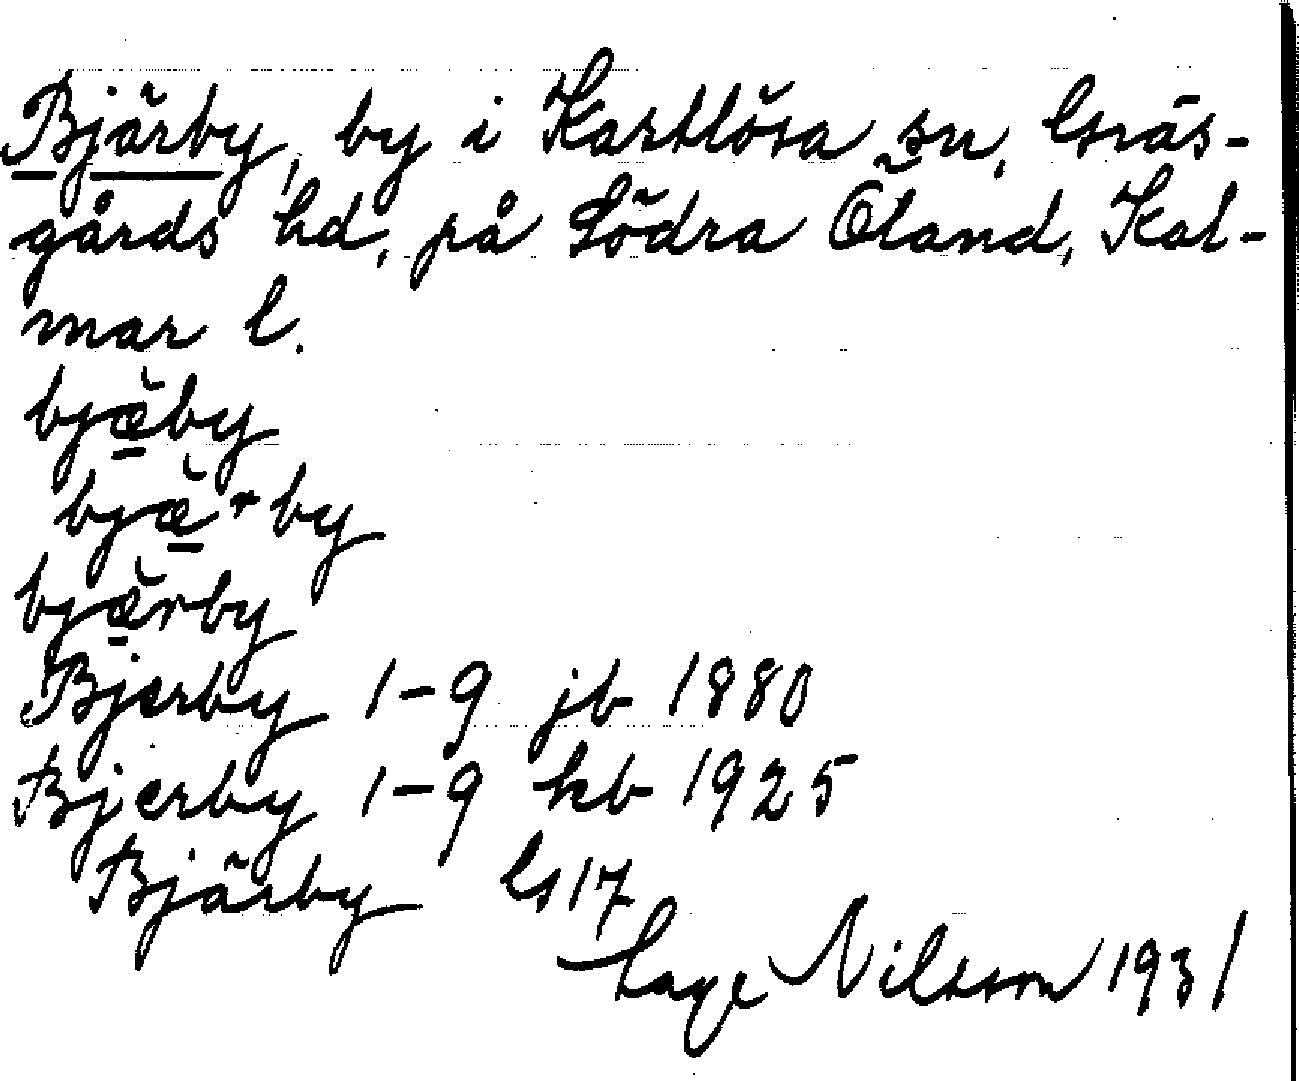 Bjärby, by i Kastlösa sn, Gräs-
gårds hd, på Södra Öland, Kal-
mar l.
bjæ̆by
bjæ̆ + by
bjæ̆rby
Bjerby 1-9 jb 1880
Bjerby 1-9 kb 1925
Bjärby Gs 17
Tage Nilsson 1931